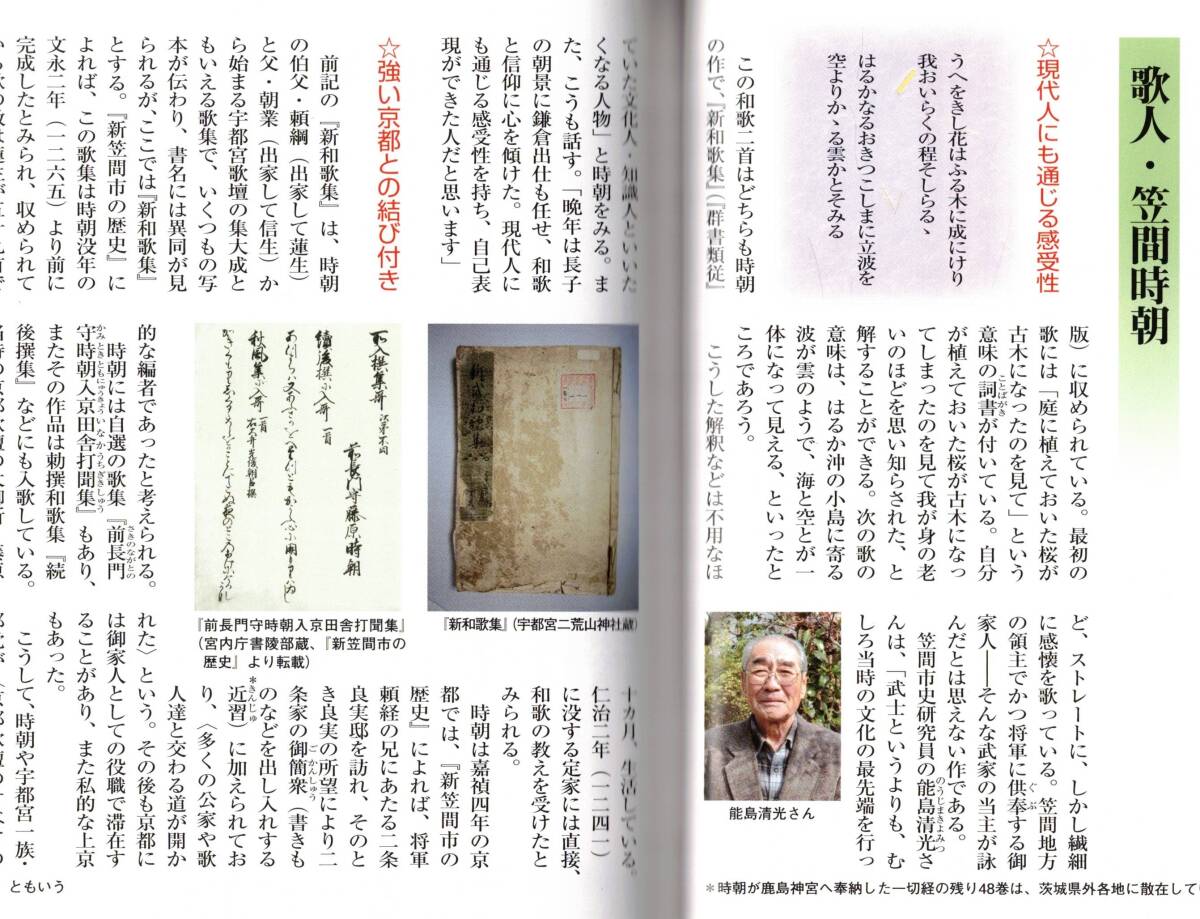 歌人・笠間時朝
☆現代人にも通じる感受性
うへをきし花はふる木に成にけり
我おいらくの程そしらるゝ
はるかなるおきつこしまに立波を
空よりかゝる雲かとそみる
この和歌二首はどちらも時朝
の作で、『新和歌集』（『群書類従』
版）に収められている。最初の
歌には「庭に植えておいた桜が
古木になったのを見て」という
意味の詞書が付いている。自分
ことばがき
が植えておいた桜が古木になっ
てしまったのを見て我が身の老
いのほどを思い知らされた、と
解することができる。次の歌の
意味は、はるか沖の小島に寄る
波が雲のようで、海と空とが一
体になって見える、といったと
ころであろう。
こうした解釈などは不用なほ
ど、ストレートに、しかし繊細
に感懐を歌っている。笠間地方
の領主でかつ将軍に供奉する御
ぐぶ
家人――そんな武家の当主が詠
んだとは思えない作である。
笠間市史研究員の能島清光さ
のうじまきよみつ
んは、「武士というよりも、む
しろ当時の文化の最先端を行っ
能島清光さん
＊時朝が鹿島神宮へ奉納した一切経の残り48巻は、茨城県外各地に散在して
ていた文化人・知識人といいた
くなる人物」と時朝をみる。ま
た、こうも話す。「晩年は長子
の朝景に鎌倉出仕も任せ、和歌
と信仰に心を傾けた。現代人に
も通じる感受性を持ち、自己表
現ができた人だと思います」
☆強い京都との結び付き
前記の『新和歌集』は、時朝
の伯父・頼綱（出家して蓮生）
と父・朝業（出家して信生）か
ら始まる宇都宮歌壇の集大成と
もいえる歌集で、いくつもの写
本が伝わり、書名には異同が見
られるが、ここでは『新和歌集』
とする。『新笠間市の歴史』に
よれば、この歌集は時朝没年の
文永二年（一二六五）より前に
完成したとみられ、収められて
『新和歌集』（宇都宮二荒山神社蔵）
『前長門守時朝入京田舎打聞集』
（宮内庁書陵部蔵、『新笠間市の
歴史』より転載）
的な編者であったと考えられる。
時朝には自選の歌集『前長門
さきのながとの
守時朝入京田舎打聞集』もあり、
かみときともにゅうきょういなかうちぎきしゅう
またその作品は勅撰和歌集『続
後撰集』などにも入歌している。
十カ月、生活している。
仁治二年（一二四一）
に没する定家には直接、
和歌の教えを受けたと
みられる。
時朝は嘉禎四年の京
都では、『新笠間市の
歴史』によれば、将軍
頼経の兄にあたる二条
良実邸を訪れ、そのと
き良実の所望により二
条家の御簡衆（書きも
ごかんしゅう
のなどを出し入れする
近習）に加えられてお
＊きんじゅ
り、〈多くの公家や歌
人達と交わる道が開か
れた〉という。その後も京都に
は御家人としての役職で滞在す
ることがあり、また私的な上京
もあった。
こうして、時朝や宇都宮一族・
ともいう